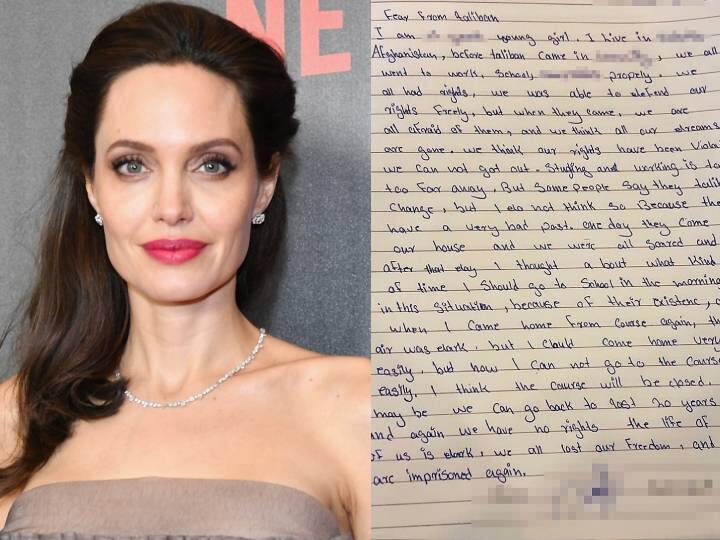 NE
Fear From taliban
I am young girl. I live in
Afghanistan, before taliban came in , we all
went to work, school, propely. we
all had rights, we was able to defend our
rights freely, but when they came, we are
all afraid of them, and we think all our dreams
are gone. we think our rights have been Viola
we can not got out. Studing and working is to
too far away. But Some people say they talib
change, but I do not think so Because the
have a very bad past. one day they Come
our house and we were all Scared and
after that day I thought a bout what Kind
of time I Should go to School in the morning
in this Situation, because of their existenc,
when I came home from course again, th
air was dark, but I Could come home very
easily, but now I can not go to the Course
easily, I think the course will be closed.
may be we can go back to last 20 years
and again we have no rights the life of
of us is dark, we all lost our freedom, and
are imprisoned again.